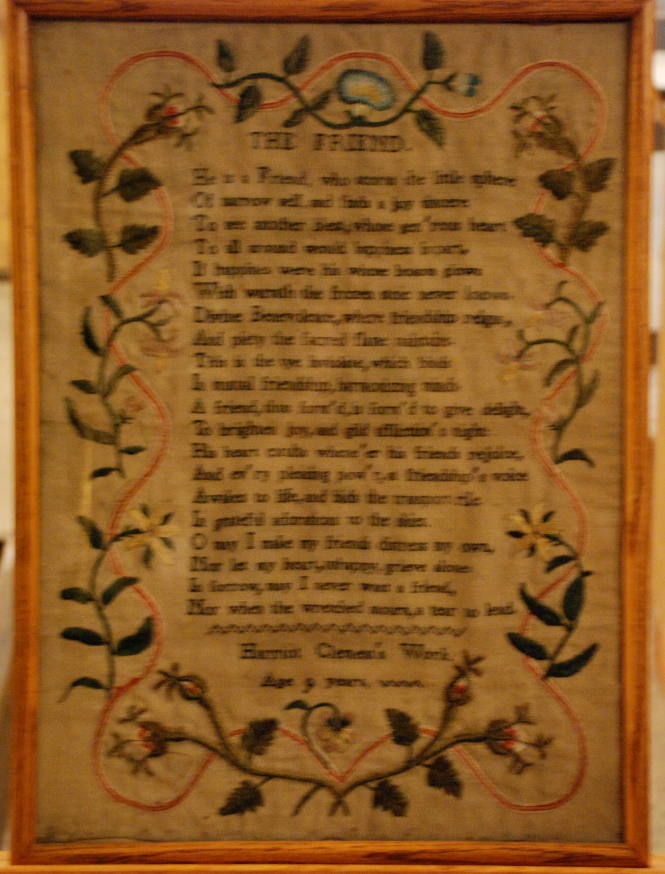 THE FRIEND.
He is a Friend, who scorns the little sphere
Of narrow self, and finds a joy sincere
To see another blest, whose gen'rous heart
To all around would happiness impart,
If happiness were his whose bosom glows
With warmth the frozen never knows.
Divine Benevolence, where friendship reigns,
And piety the sacred flame maintains
This is the tye, which binds
In mutual friendship, harmonizing minds
A friend, thus form'd, is form'd to give delight,
To brighten joy, and gild affliction's night
His heart exults whene'er his friends rejoice,
And ev'ry pleasing pow'r, a friendship's voice
Awakes to life, and bids the transport rise
In grateful adorations to the skies.
O may I make my friends distress my own,
Nor let my heart, unhappy, grieve alone
In sorrow, may I never want a friend,
Nor when the wretched mourn, a tear to lend.
Harriot Work,
Age 9 years,